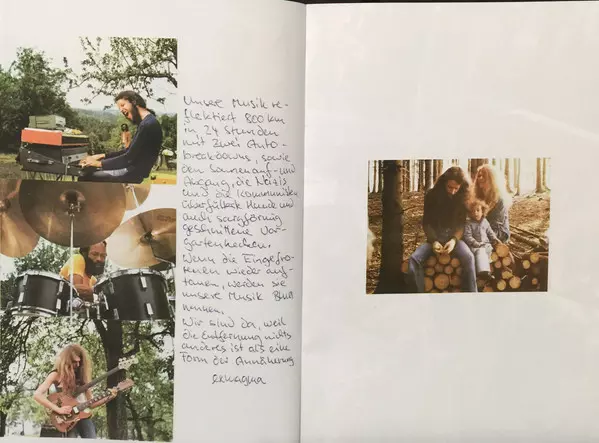 Unsere Musik re-
flektiert 800 km
in 24 Stunden
mit zwei Auto-
breakdowns, sowie
den Sonnenauf- und
Untergang, die Nazis
und die Kommunisten
überfütterte Hunde und
auch sargförmig
geschnittene Vor-
gartenhecken.
Wenn die Eingefro-
renen wieder auf-
tauen, werden sie
unsere Musik Blues
nennen.
Wir sind da, weil
die Entfernung nichts
anderes ist als eine
Form der Annäherung